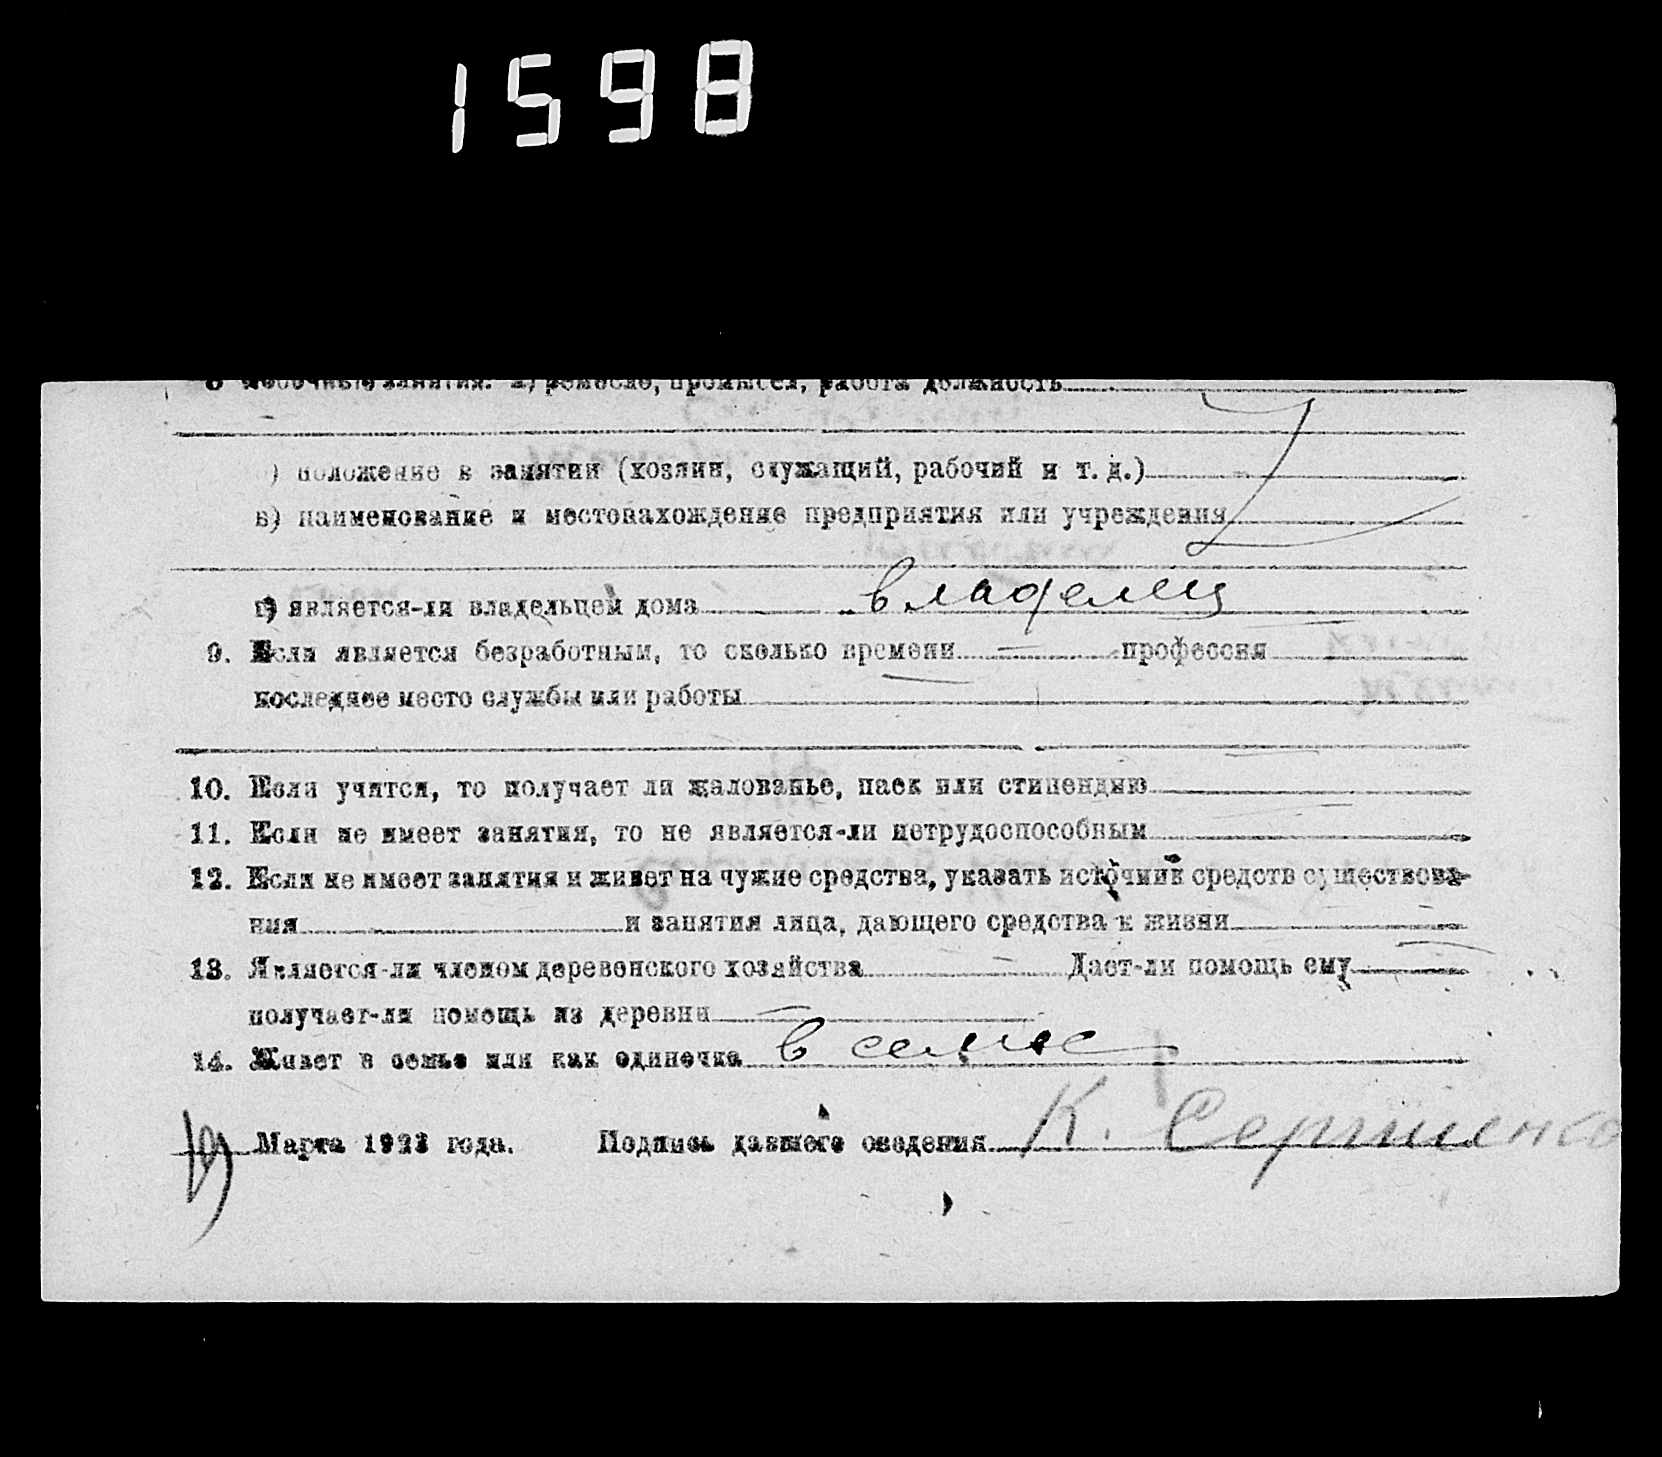 1598
8 Побочные занятия: а) ремесло, промысел, работа должность
б) положение в занятии (хозяин, служащий, рабочий и т. д.)
в) наименование и местонахождение предприятия или учреждения
г) является-ли владельцем дома владелец
9. Если является безработным, то сколько времени — профессия
последнее место службы или работы
10. Если учится, то получает ли жалованье, паек или стипендию
11. Если не имеет занятия, то не является-ли нетрудоспособным
12. Если не имеет занятия и живет на чужие средства, указать источник средств существова-
ния и занятия лица, дающего средства к жизни
13. Является-ли членом деревенского хозяйства — Дает-ли помощь ему
получает-ли помощь из деревни —
14. Живет в семье или как одиночка в семье
19 Марта 1923 года. Подпись давшего сведения К.